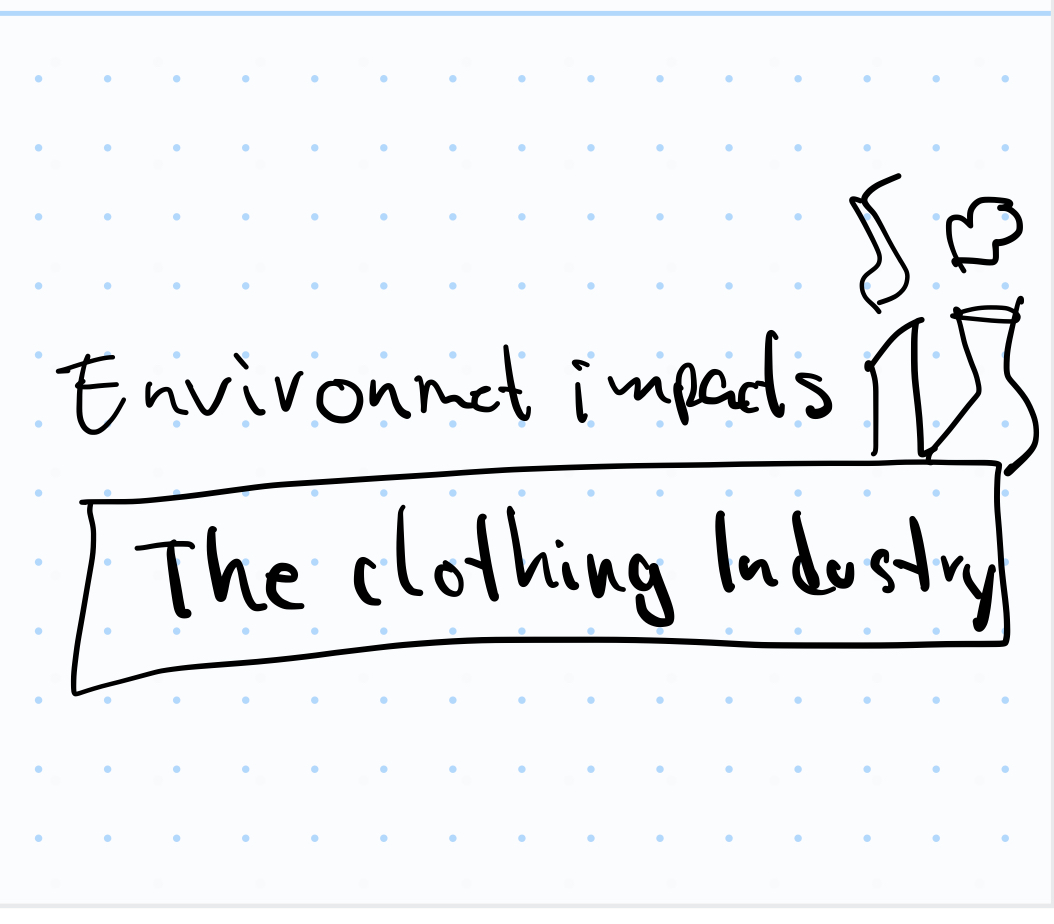 Environmet impacts
The clothing Industry